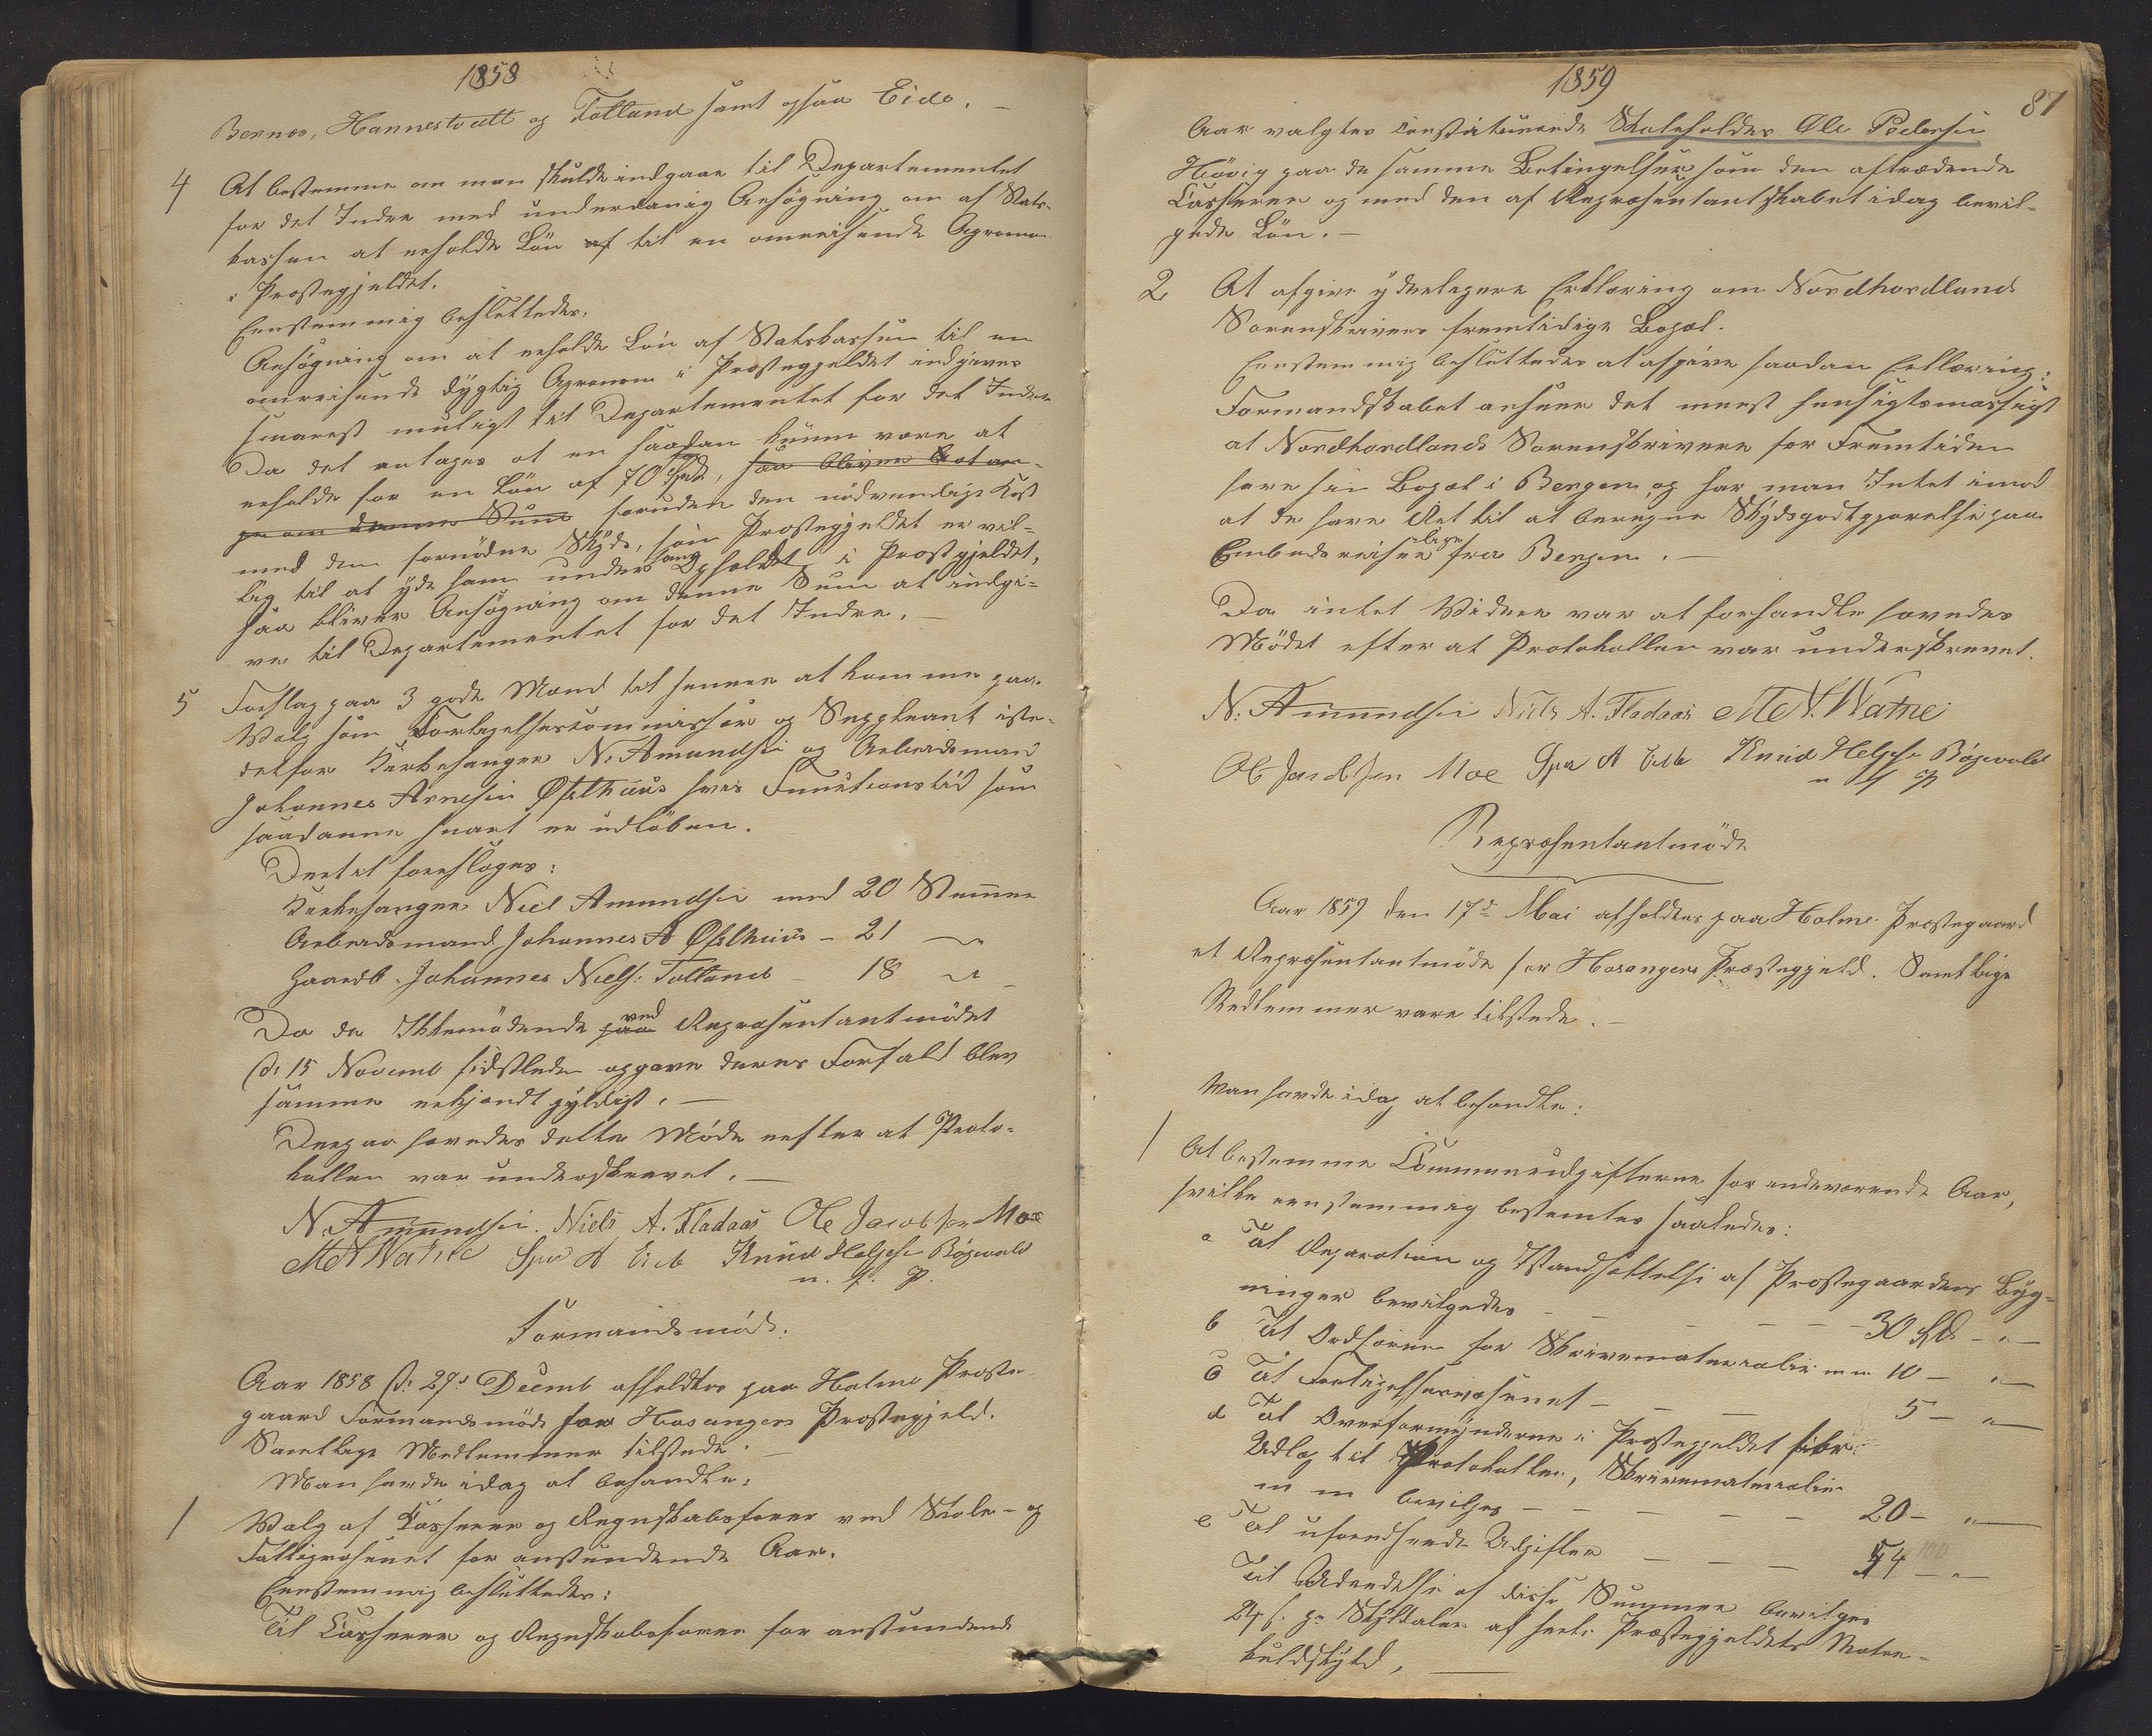 1858
Bernæs, Hannestvedt og Totland samt ogsaa Eide. —
4 At bestemme om man skulde indgaae til Departementet
for det Indre med underdanig Ansøgning om af Stats-
kassen at erholde Løn af til en omreisende Agronom
i Præstegjeldet.
Eenstemmig besluttedes:
Ansøgning om at erholde Løn af Statskassen til en
omreisende dygtig Agronom i Præstegjeldet indgives
snarest muligt til Departementet for det Indre
Da det antages at en saadan kunne være at
erholde for en Løn af 70 Spd, saa bliver at an-
ge om denne Sum foruden den nødvendige Kost
med den fornødne Skyds, som Præstegjeldet er vil-
lig til at yde ham under hans Ophold i Præstgjeldet,
saa bliver Ansøgning om denne Sum at indgi-
ve til Departementet for det Indre. —
5 Forslag paa 3 gode Mænd til hennen at komme paa
Valg som Forligelsescommissair og Suppleant iste-
detfor Kirkesanger N. Amundsen og Arbeidsmand
Johannes Arnesen Øfsthuus hvis Functionstid som
saadanne snart er udløben.
Dertil foresloges:
Kirkesanger Niel Amundsen med 20 Stemmer
Arbeidsmand Johannes A Øfsthuus - 21 —
Gaardb. Johannes Niels: Totland 18 —
Da de Ikkemødende paa ved Repræsentantmødet
d: 15 Novemb sidstleden opgave deres Forfald blev
samme erkjændt gyldigt. —
Derpaa hævedes dette Møde efter at Proto-
kollen var underskrevet. —
N. Amundsen. Niels A. Fladaas Ole Jacobsen Moe
M A Watne Iver A Eide Knud Helgesen Bøgevold
m. f. P.
Formandsmøde.
Aar 1858 d: 27d Decemb afholdtes paa Halme Præste-
gaard Formandsmøde for Hosangers Præstegjeld.
Samtlige Medlemmer tilstede. —
Man havde idag at behandle:
1 Valg af Kasserer og Regnskabsfører ved Skole- og
Fattigvæsenet for anstundende Aar.
Eenstemmig besluttedes:
Til Kasserer og Regnskabsfører for anstundende
1859
87
Aar valgtes constituerende Skoleholder Ole Pedersen
Høvig paa de samme Betingelser som den aftrædende
Kasserer og med den af Repræsentantskabet idag bevil-
gede Løn. —
2 At afgive yderligere Erklæring om Nordhordlands
Sorenskrivers fremtidige Bopæl.
Eenstemmig besluttedes at afgive saadan Erklæring:
Formandskabet anseer det meest hensigtsmæssigt
at Nordhordlands Sorenskrivere for Fremtiden
have sin Bopæl i Bergen, og har man Intet imod
at de have Ret til at beregne Skydsgodtgjørelse paa
Embedsreiser lige fra Bergen. —
Da intet Videre var at forhandle hævedes
Mødet efter at Protokollen var underskrevet.
N. Amundsen Niels A. Fladaas M A. Watne
Ole Jacobsen Moe Iver A Eide Knud Helgesen Bøgevold
m f P
Repræsentantmøde
Aar 1859 den 17d Mai afholdtes paa Halme Præstegaard
et Repræsentantmøde for Hosangers Præstegjeld. Samtlige
Medlemmer vare tilstede. —
Man havde idag at behandle:
1 At bestemme Communeudgifterne for indeværende Aar,
hvilke eenstemmig bestemtes saaledes:
a Til Reparation og Istandsættelse af Præstegaardens Byg-
ninger bevilgedes — — — 30 Spd - " —
b Til Ordføreren for Skrivematerialier m m 10 — " —
c Til Forligelsesvæsenet — — — 5 — " —
d Til Overformynderne i Præstegjeldet for
Udlæg til Protokoller, Skrivematerialier
m m bevilges — — — 20 — " —
e Til uforudseende Udgifter — — — 54 — " —
Til Udredelse af disse Summer bevilges
24 s. pr Skylddaler af hele Præstegjeldets Matri-
kulskyld, —